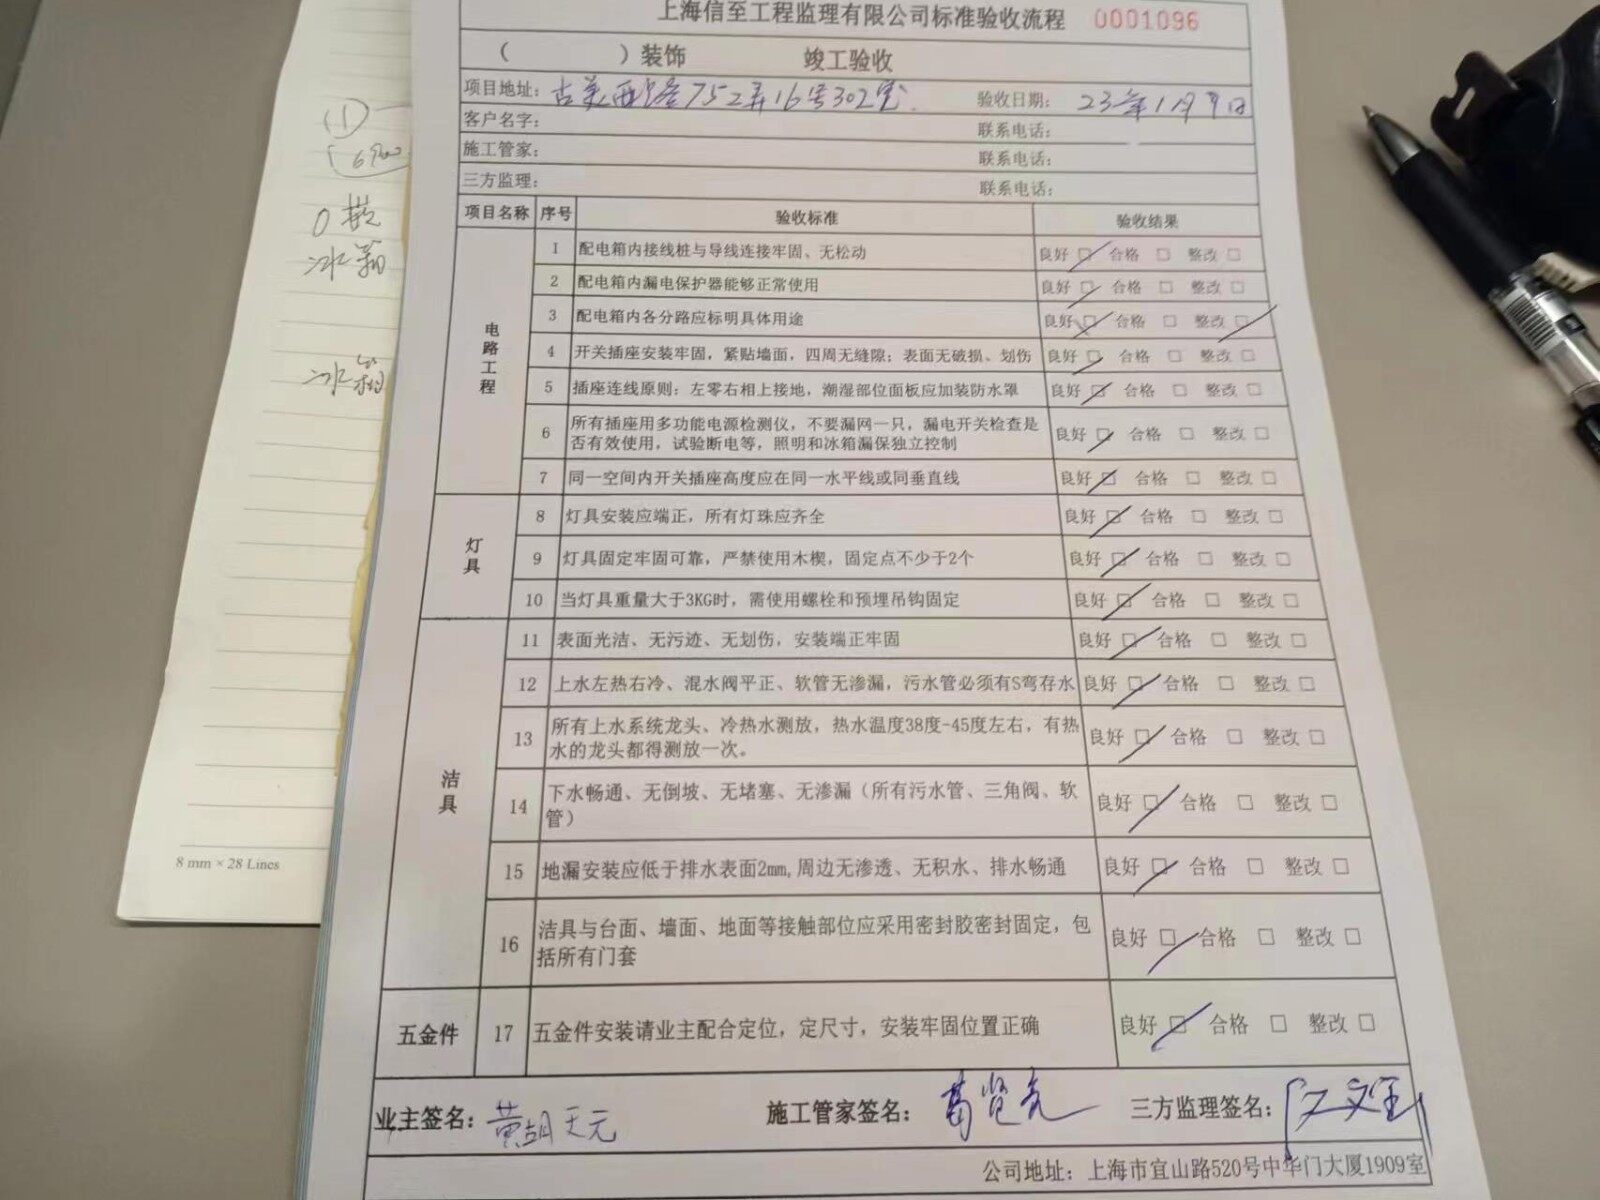 上海信至工程监理有限公司标准验收流程 0001096
（ ）装饰 竣工验收
项目地址：古美西路752弄16号302室 验收日期：23年1月9日
客户名字： 联系电话：
施工管家： 联系电话：
三方监理： 联系电话：
项目名称 序号 验收标准 验收结果
电路工程
1 配电箱内接线桩与导线连接牢固、无松动 良好 □ 合格 □ 整改 □
2 配电箱内漏电保护器能够正常使用 良好 □ 合格 □ 整改 □
3 配电箱内各分路应标明具体用途 良好 □ 合格 □ 整改 □
4 开关插座安装牢固，紧贴墙面，四周无缝隙；表面无破损、划伤 良好 □ 合格 □ 整改 □
5 插座连线原则：左零右相上接地，潮湿部位面板应加装防水罩 良好 □ 合格 □ 整改 □
6 所有插座用多功能电源检测仪，不要漏网一只，漏电开关检查是
否有效使用，试验断电等，照明和冰箱漏保独立控制 良好 □ 合格 □ 整改 □
7 同一空间内开关插座高度应在同一水平线或同垂直线 良好 □ 合格 □ 整改 □
灯具
8 灯具安装应端正，所有灯珠应齐全 良好 □ 合格 □ 整改 □
9 灯具固定牢固可靠，严禁使用木楔，固定点不少于2个 良好 □ 合格 □ 整改 □
10 当灯具重量大于3KG时，需使用螺栓和预埋吊钩固定 良好 □ 合格 □ 整改 □
洁具
11 表面光洁、无污迹、无划伤，安装端正牢固 良好 □ 合格 □ 整改 □
12 上水左热右冷、混水阀平正、软管无渗漏，污水管必须有S弯存水 良好 □ 合格 □ 整改 □
13 所有上水系统龙头、冷热水测放，热水温度38度-45度左右，有热
水的龙头都得测放一次。 良好 □ 合格 □ 整改 □
14 下水畅通、无倒坡、无堵塞、无渗漏（所有污水管、三角阀、软
管） 良好 □ 合格 □ 整改 □
15 地漏安装应低于排水表面2mm,周边无渗透、无积水、排水畅通 良好 □ 合格 □ 整改 □
16 洁具与台面、墙面、地面等接触部位应采用密封胶密封固定，包
括所有门套 良好 □ 合格 □ 整改 □
五金件 17 五金件安装请业主配合定位，定尺寸，安装牢固位置正确 良好 □ 合格 □ 整改 □
业主签名：黄胡天元 施工管家签名： 三方监理签名：
公司地址：上海市宜山路520号中华门大厦1909室
8 mm × 28 Lines